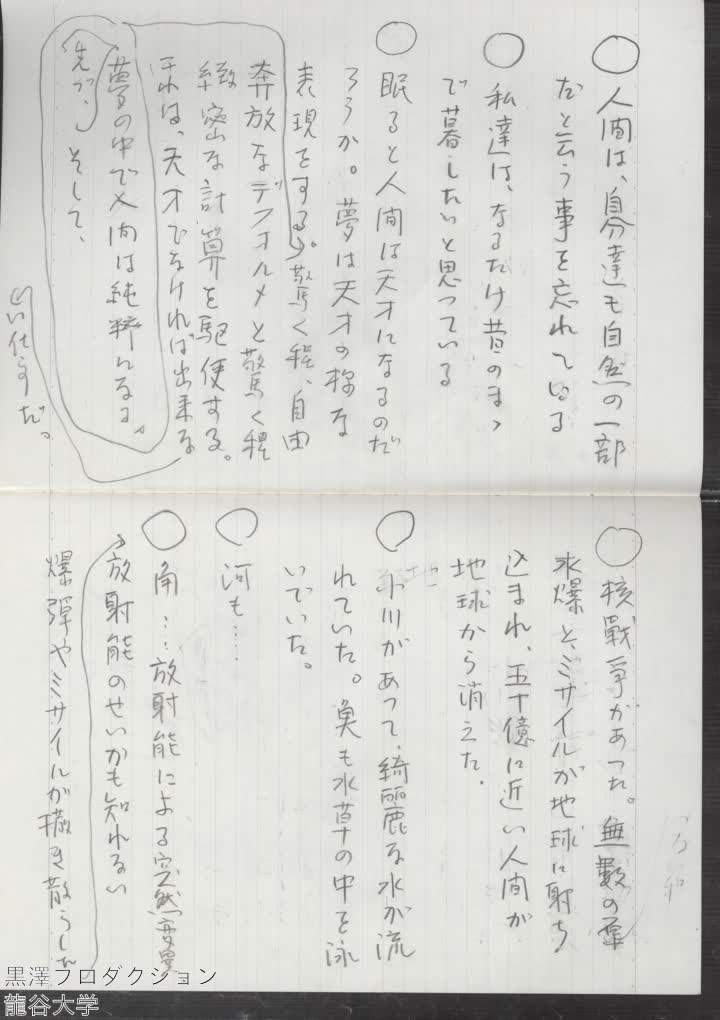 ○人間は、自分達も自然の一部
だと云う事を忘れている
○私達は、なるだけ昔のまゝ
で暮したいと思っている
○眠ると人間は天才になるのだ
ろうか。夢は天才の様な
表現をする。驚く程、自由
奔放なデフォルメと驚く程
緻密な計算を駆使する。
それは、天才でなければ出来な
夢の中で人間は純粋になる。
先づ、そして、
い仕事だ。
○核戦争があった。無数の
水爆と、ミサイルが地球に射ち
込まれ、五十億に近い人間が
地球から消えた。
○小川があって、綺麗な水が流
れていた。魚も水草の中を泳
いでいた。
○河も……
○角…放射能による突然変異
放射能のせいかも知れない
爆弾やミサイルが撒き散らした
黒澤プロダクション
龍谷大学